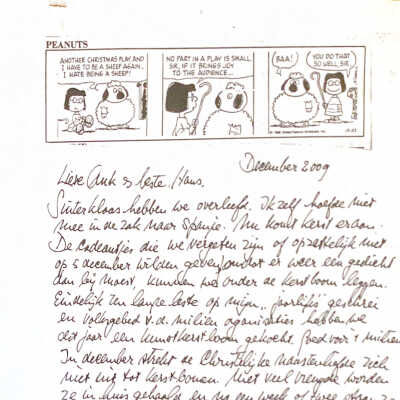 PEANUTS
ANOTHER CHRISTMAS PLAY AND
I HAVE TO BE A SHEEP AGAIN..
I HATE BEING A SHEEP!
NO PART IN A PLAY IS SMALL,
SIR, IF IT BRINGS JOY
TO THE AUDIENCE...
BAA!
YOU DO THAT
SO WELL, SIR
12-23
December 2009
Lieve Ank & beste Hans.
Sinterklaas hebben we overleefd. Ik zelf hoefde niet
mee in de zak naar Spanje. Nu komt kerst eraan.
De cadeautjes die we vergeten zijn of opzettelijk niet
op 5 december wilden geven, omdat er weer een gedicht
dan bij moest, kunnen we onder de kerstboom leggen.
Eindelijk ten lange leste op mijn „jaarlijks" geschrei
en volksgebed v.d. milieu organisaties hebben we
dit jaar een kunstkerstboom gekocht. Goed voor 't milieu
In december strekt de Christelijke naastenliefde zich
niet uit tot kerstbomen. Met veel vreugde worden
ze in huis gehaald en na een week of twee